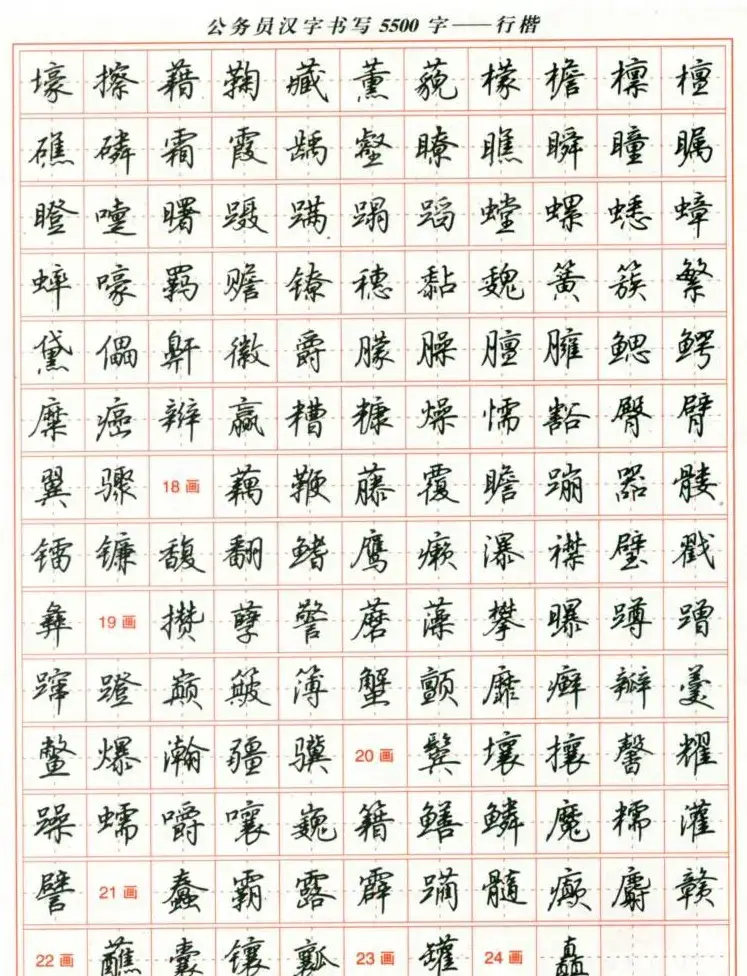 公务员汉字书写5500字——行楷
壕擦藉鞠藏薰藐檬檐檩檀
礁磷霜霞龋壑瞭瞧瞬瞳瞩
瞪嚏曙蹑蹒蹋蹈螳螺蟋蟑
蟀嚎羁赡镣穗黏魏簧簇繁
黛儡鼾徽爵朦臊膻臃鳃鳄
糜癌辫赢糟糠燥懦豁臀臂
翼骤18画藕鞭藤覆瞻蹦嚣髅
镭镰馥翻鳍鹰癞瀑襟璧戳
彝19画攒孽警蘑藻攀曝蹲蹭
蹿蹬巅簸簿蟹颤靡癣瓣羹
鳖爆瀚疆骥20画鬓壤攘馨耀
躁蠕嚼嚷巍籍鳝鳞魔糯灌
譬21画蠢霸露霹躏髓癫麝赣
22画蘸囊镶瓤23画罐24画矗